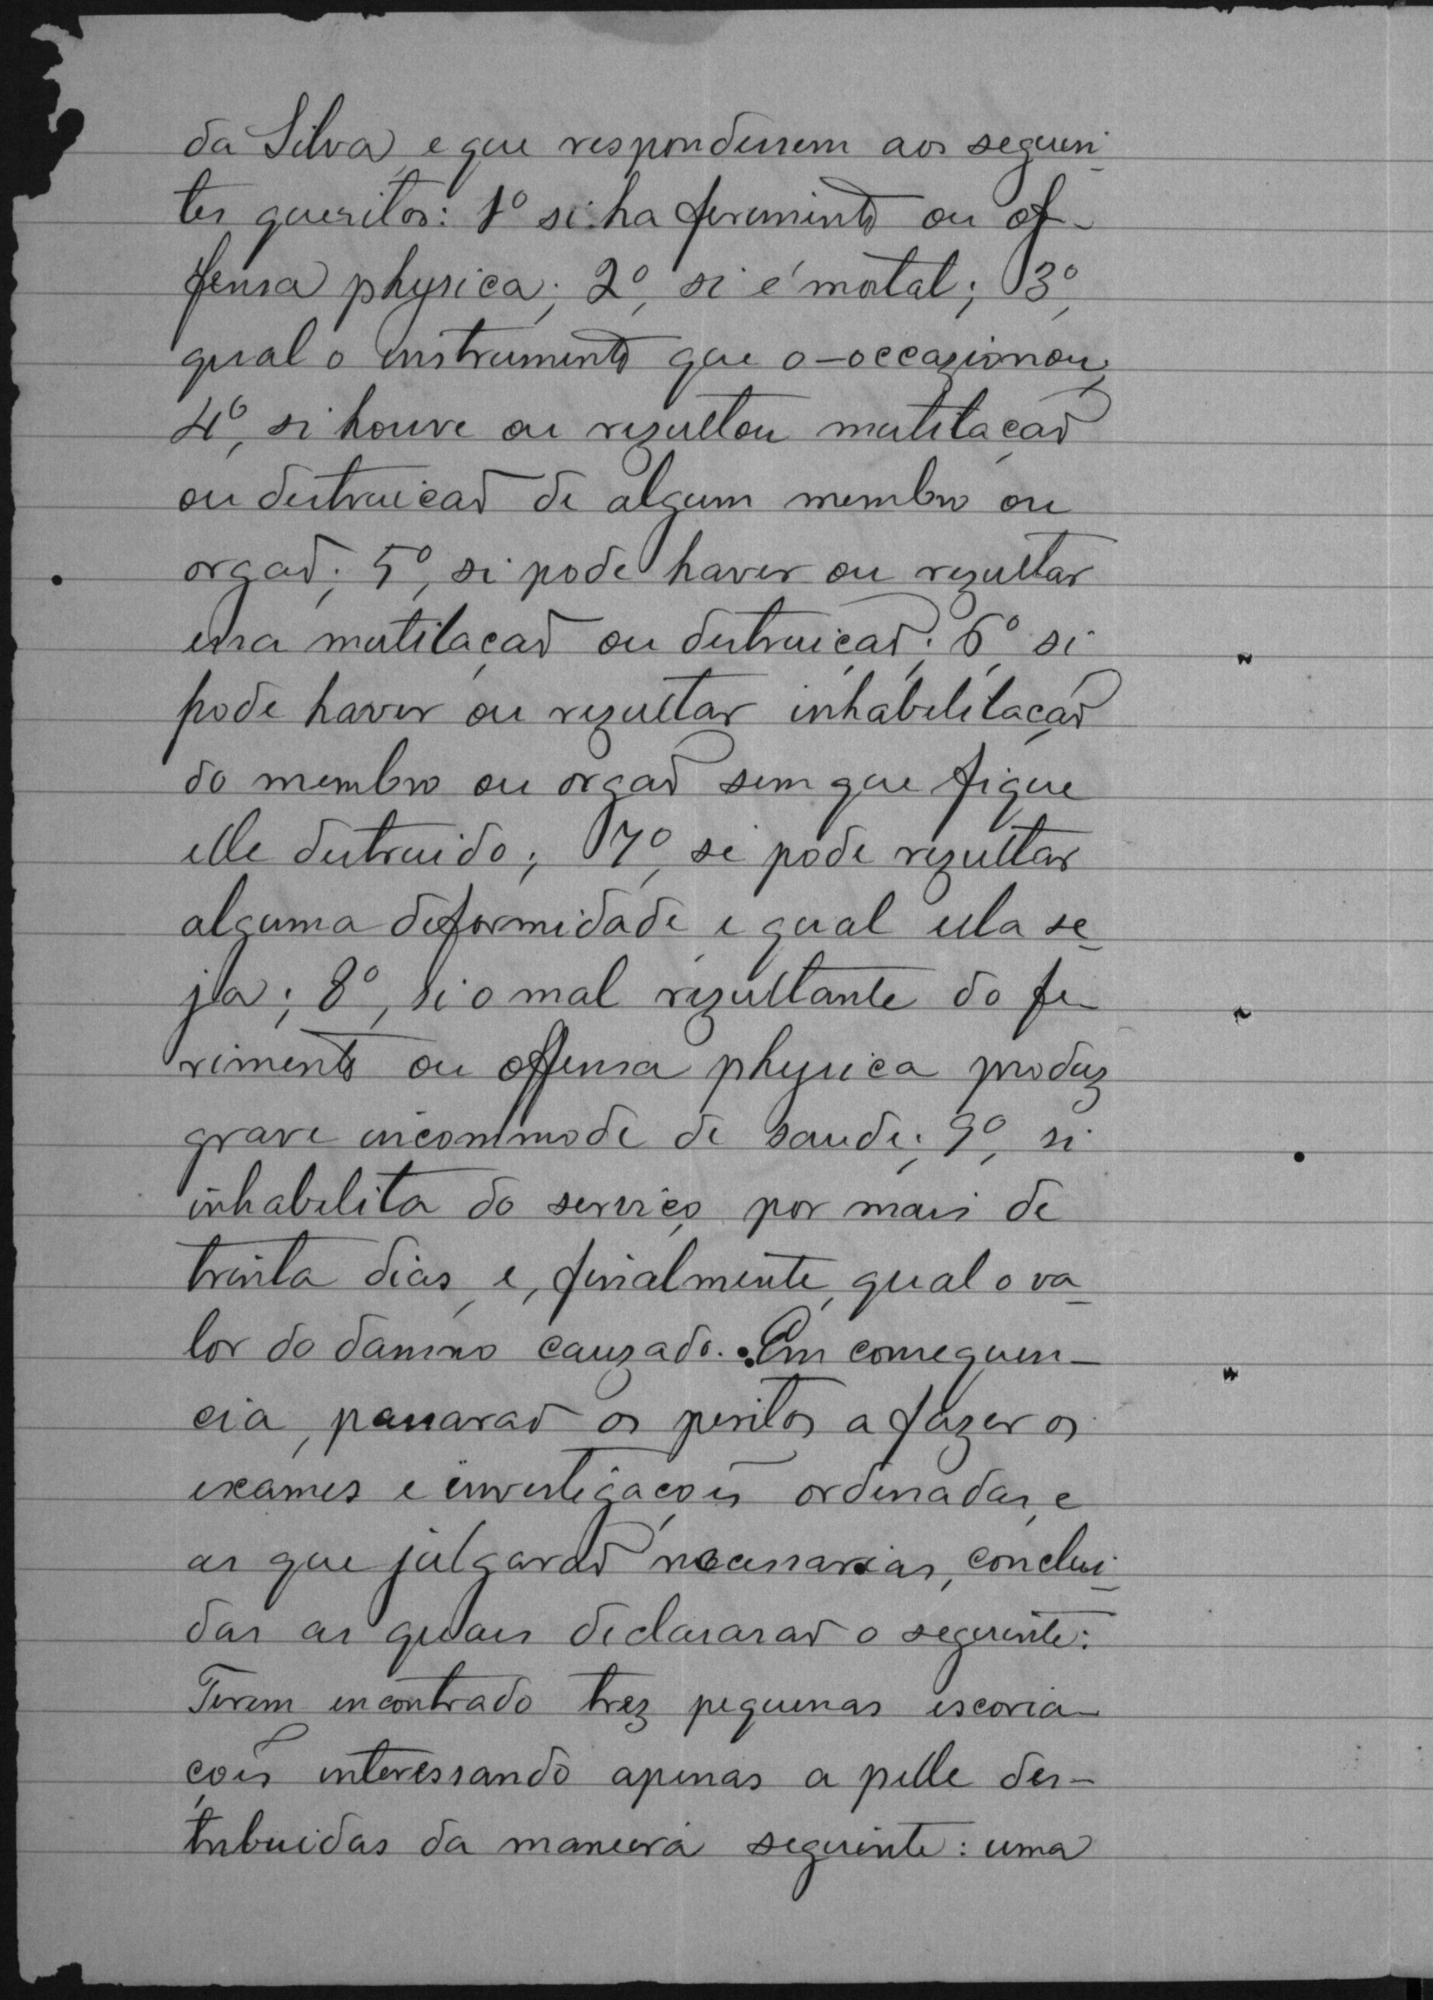 da Silva, e que respondessem aos seguin-
tes quesitos: 1º si ha ferimento ou of-
fensa physica; 2º, si é mortal; 3º,
qual o instrumento que o-occazionou;
4º, si houve ou rezultou mutilação
ou destruicão de algum membro ou
orgão; 5º, si pode haver ou rezultar
essa mutilação ou destruição; 6º, si
pode haver ou rezultar inhabilitação
do membro ou orgão sem que fique
elle destruido; 7º, si pode rezultar
alguma deformidade e qual ella se-
ja; 8º, si o mal rezultante do fe-
rimento ou offensa physica produz
grave incommodo de saude; 9º, si
inhabilita do serviço por mais de
trinta dias, e, finalmente, qual o va-
lor do damno cauzado. Em consequen-
cia, passarão os peritos a fazer os
exames e investigações ordenadas, e
as que julgarão necessarias, conclui-
das as quaes declararão o seguinte:
Terem encontrado trez pequenas escoria-
ções interessando apenas a pelle des-
tribuidas da maneira seguinte: uma